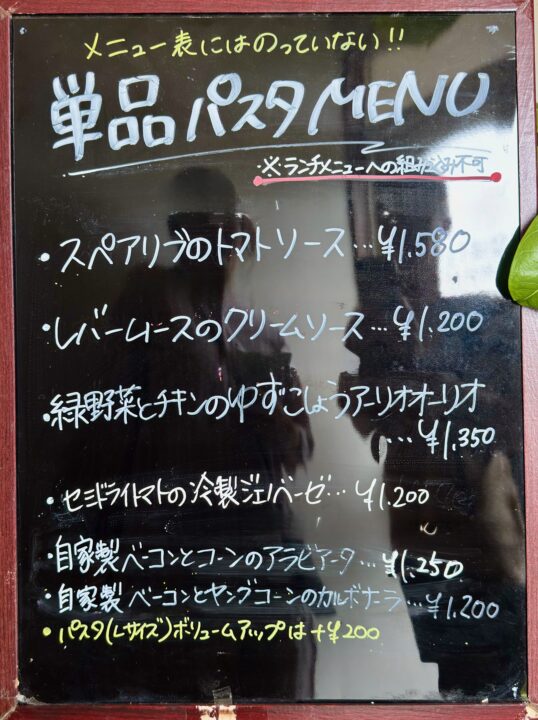 メニュー表にはのっていない!!
単品パスタMENU
※ランチメニューへの組み込み不可
・スペアリブのトマトソース…¥1.580
・レバームースのクリームソース…¥1.200
・緑野菜とチキンのゆずこしょうアーリオオーリオ
…¥1.350
・セミドライトマトの冷製ジェノベーゼ…¥1.200
・自家製ベーコンとコーンのアラビアータ…¥1.250
・自家製ベーコンとヤングコーンのカルボナーラ…¥1.200
・パスタ(Lサイズ)ボリュームアップは+¥200